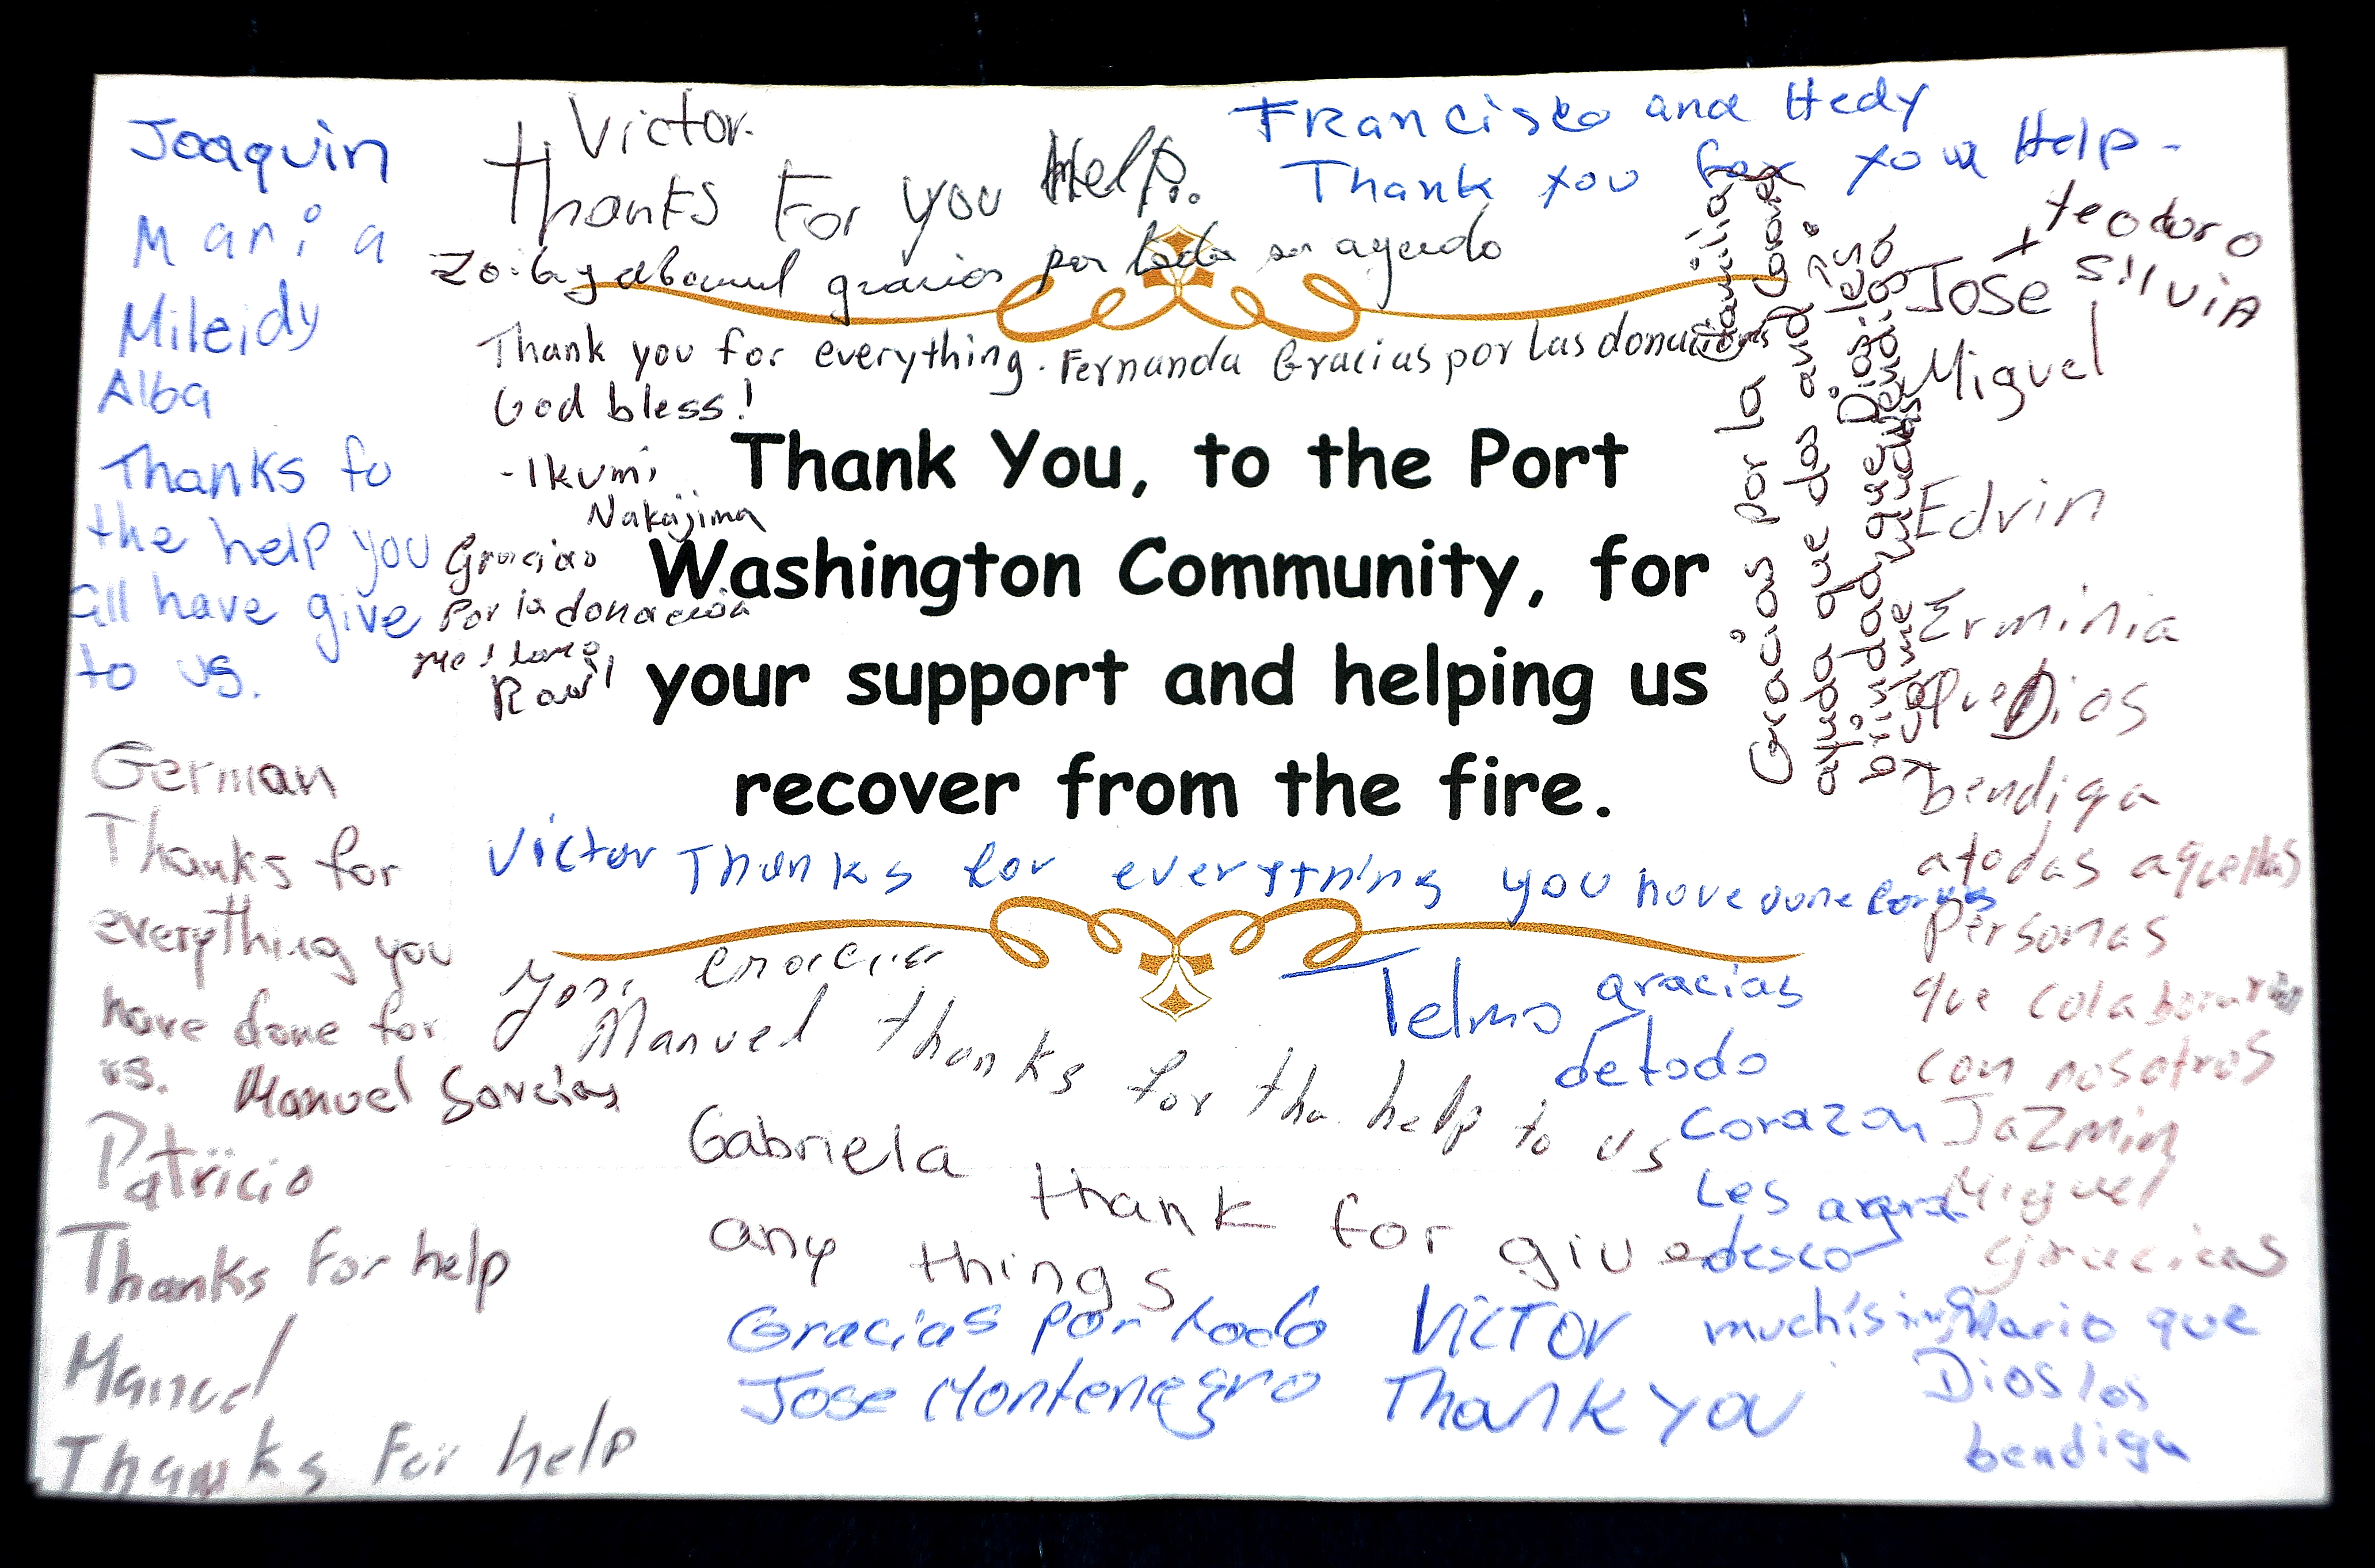 Joaquin
Maria
Mileidy
Alba
Thanks fo
the help you
all have give
to us.
German
Thanks for
everything you
have done for
us.
Manuel
Patricio
Thanks For help
Manuel
Thanks For help
Victor.
Thanks For you Help.
gracias por toda su
Thank you for everything.
God bless!
-Ikumi
Nakajima
Fernanda Gracias por Las donaciones
Gracias
Por la donación
Raul
Francisco and Hedy
Thank you for your Help-
Thank You, to the Port
Washington Community, for
your support and helping us
recover from the fire.
Victor Thanks for everything you have done for us
Manuel thanks for the help to us
Gabriela thank for give
any things
Gracias por todo
Jose Montenegro
VICTOR
Thank YOU
Telmo gracias
de todo
corazon
Les agra
desco
muchísimo
Gracias por la
ayuda que dos and
brindad, que Dios les
bendiga
teodoro
silvia
Jose
Miguel
Edvin
Erminia
Que Dios
bendiga
atodas aquellas
personas
que colaboraron
con nosotros
Jazmin
Miguel
Gracias
Mario que
Dios los
bendiga